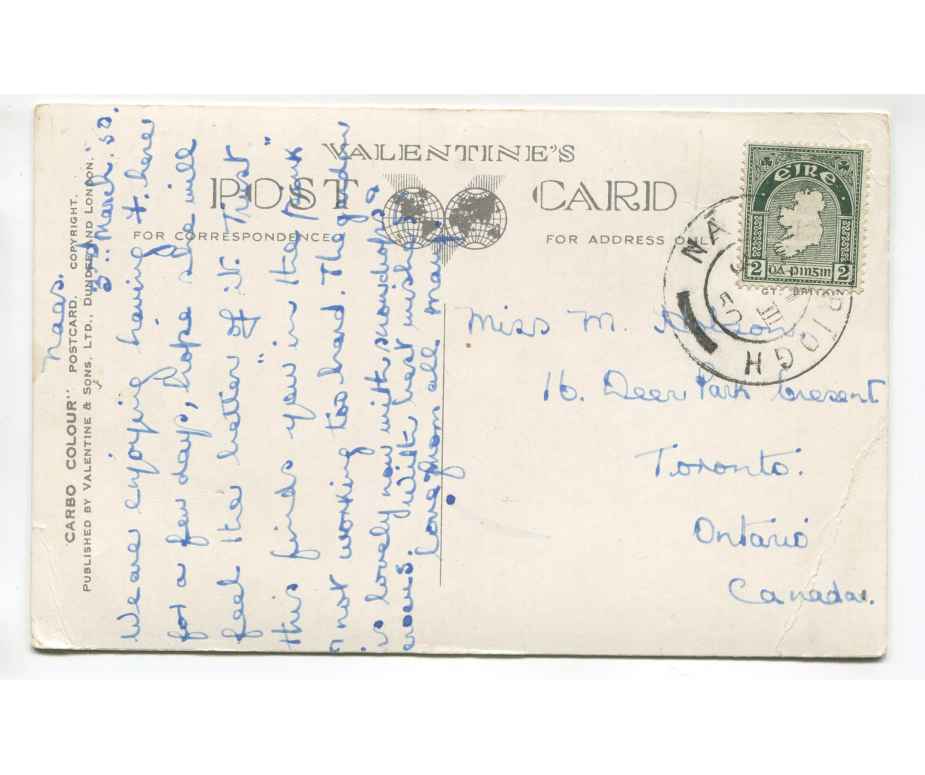 VALENTINE'S
POST CARD
FOR CORRESPONDENCE
FOR ADDRESS ONLY
"CARBO COLOUR" POSTCARD. COPYRIGHT.
PUBLISHED BY VALENTINE & SONS, LTD., DUNDEE AND LONDON.
GT. BRITAIN
Naas.
March. 50.
We are enjoying having here
for a few days, hope she will
feel the better of it. Trust
this finds you "in the Pink"
not working too hard. The garden
is lovely now with snowdrops
crocus. With best wishes
Love from all
Miss M.
16. Deer Park Cresent
Toronto.
Ontario
Canada.
éire
2 dá pinsin 2
NA IOGH
III